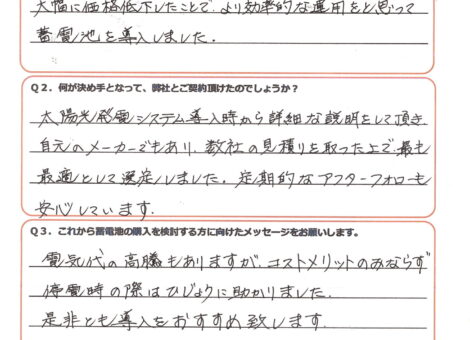 大幅に価格低下したことで、より効率的な運用をと思って
蓄電池を導入しました.
Q2．何が決め手となって、弊社とご契約頂けたのでしょうか？
太陽光発電システム導入時から詳細な説明をして頂き.
自元のメーカーでもあり、数社の見積りを取った上で、最も
最適として選定しました。定期的なアフターフォローも
安心しています.
Q3．これから蓄電池の購入を検討する方に向けたメッセージをお願いします。
電気代の高騰もありますが、コストメリットのみならず
停電時の際はひじょうに助かりました.
是非とも導入をおすすめ致します.